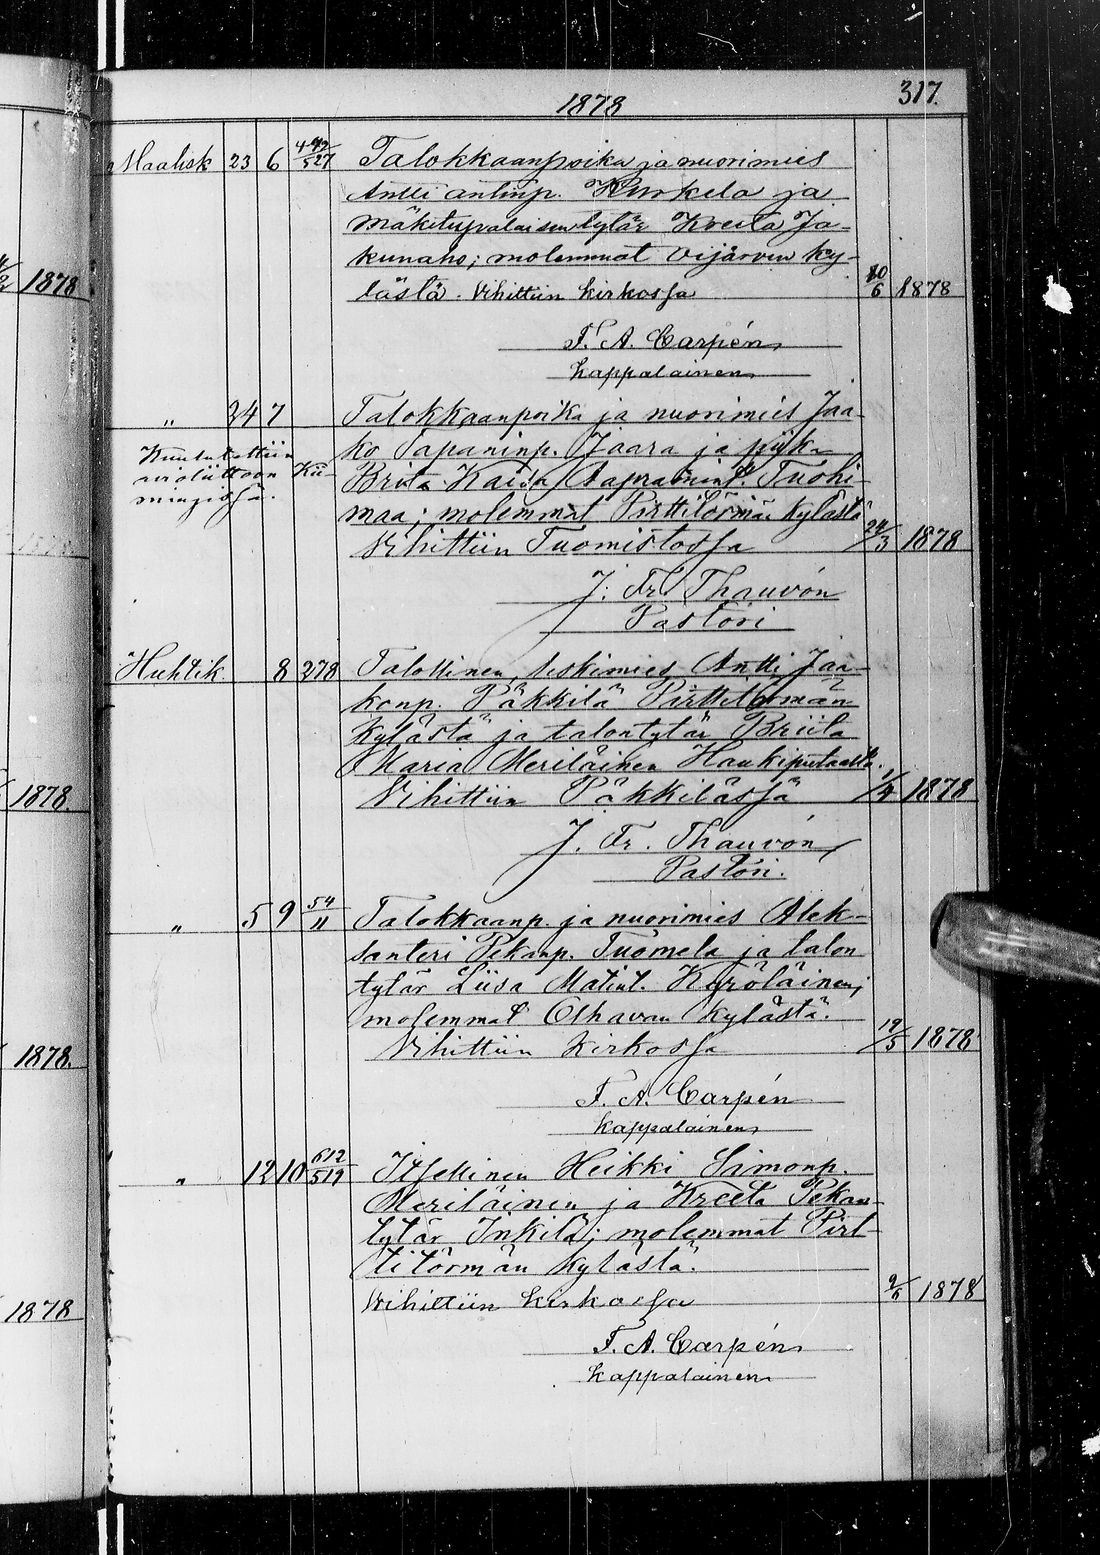 317.
1878
Maalisk 23 6 442/527 Talokkaanpoika ja nuorimies
Antti Antinp. Kurkela ja
Mäkitupalaisentytär Kreeta Ja-
kunaho; molemmat Oijärven ky-
lästä. Vihittiin kirkossa 10/6 1878
F. A. Carpén
kappalainen
" 24 7 Talokkaanpoika ja nuorimies Jaa-
ko Tapaninp. Jaara ja
Brita Kaisa Tuohi-
maa; molemmat Pirttitörmän kylästä
Kuulutettiin
avioliittoon Kii-
mingissä.
Vihittiin Tuomistossa 24/3 1878
J. Fr. Thauvón
Pastori
Huhtik. 8 278 Talollinen, leskimies Antti Jaa-
konp. Päkkilä Pirttitörmän
kylästä ja talontytär Briita
Maria Meriläinen Haukiputaalta.
Vihittiin Päkkilässä 1/4 1878
J. Fr. Thauvón
Pastori.
" 5 9 54/11 Talokkaanp. ja nuorimies Alek-
santeri Pekanp. Tuomela ja talon
tytär Liisa Matint. Keröläinen;
molemmat Olhavan kylästä.
Vihittiin kirkossa 19/5 1878
F. A. Carpén
kappalainen
" 12 10 612/519 Itsellinen Heikki Simonp.
Meriläinen ja Kreeta Pekan-
tytär Inkilä; molemmat Pirt-
titörmän kylästä.
Vihittiin kirkossa 9/6 1878
F. A. Carpén
kappalainen
1878
1878.
1878.
1878